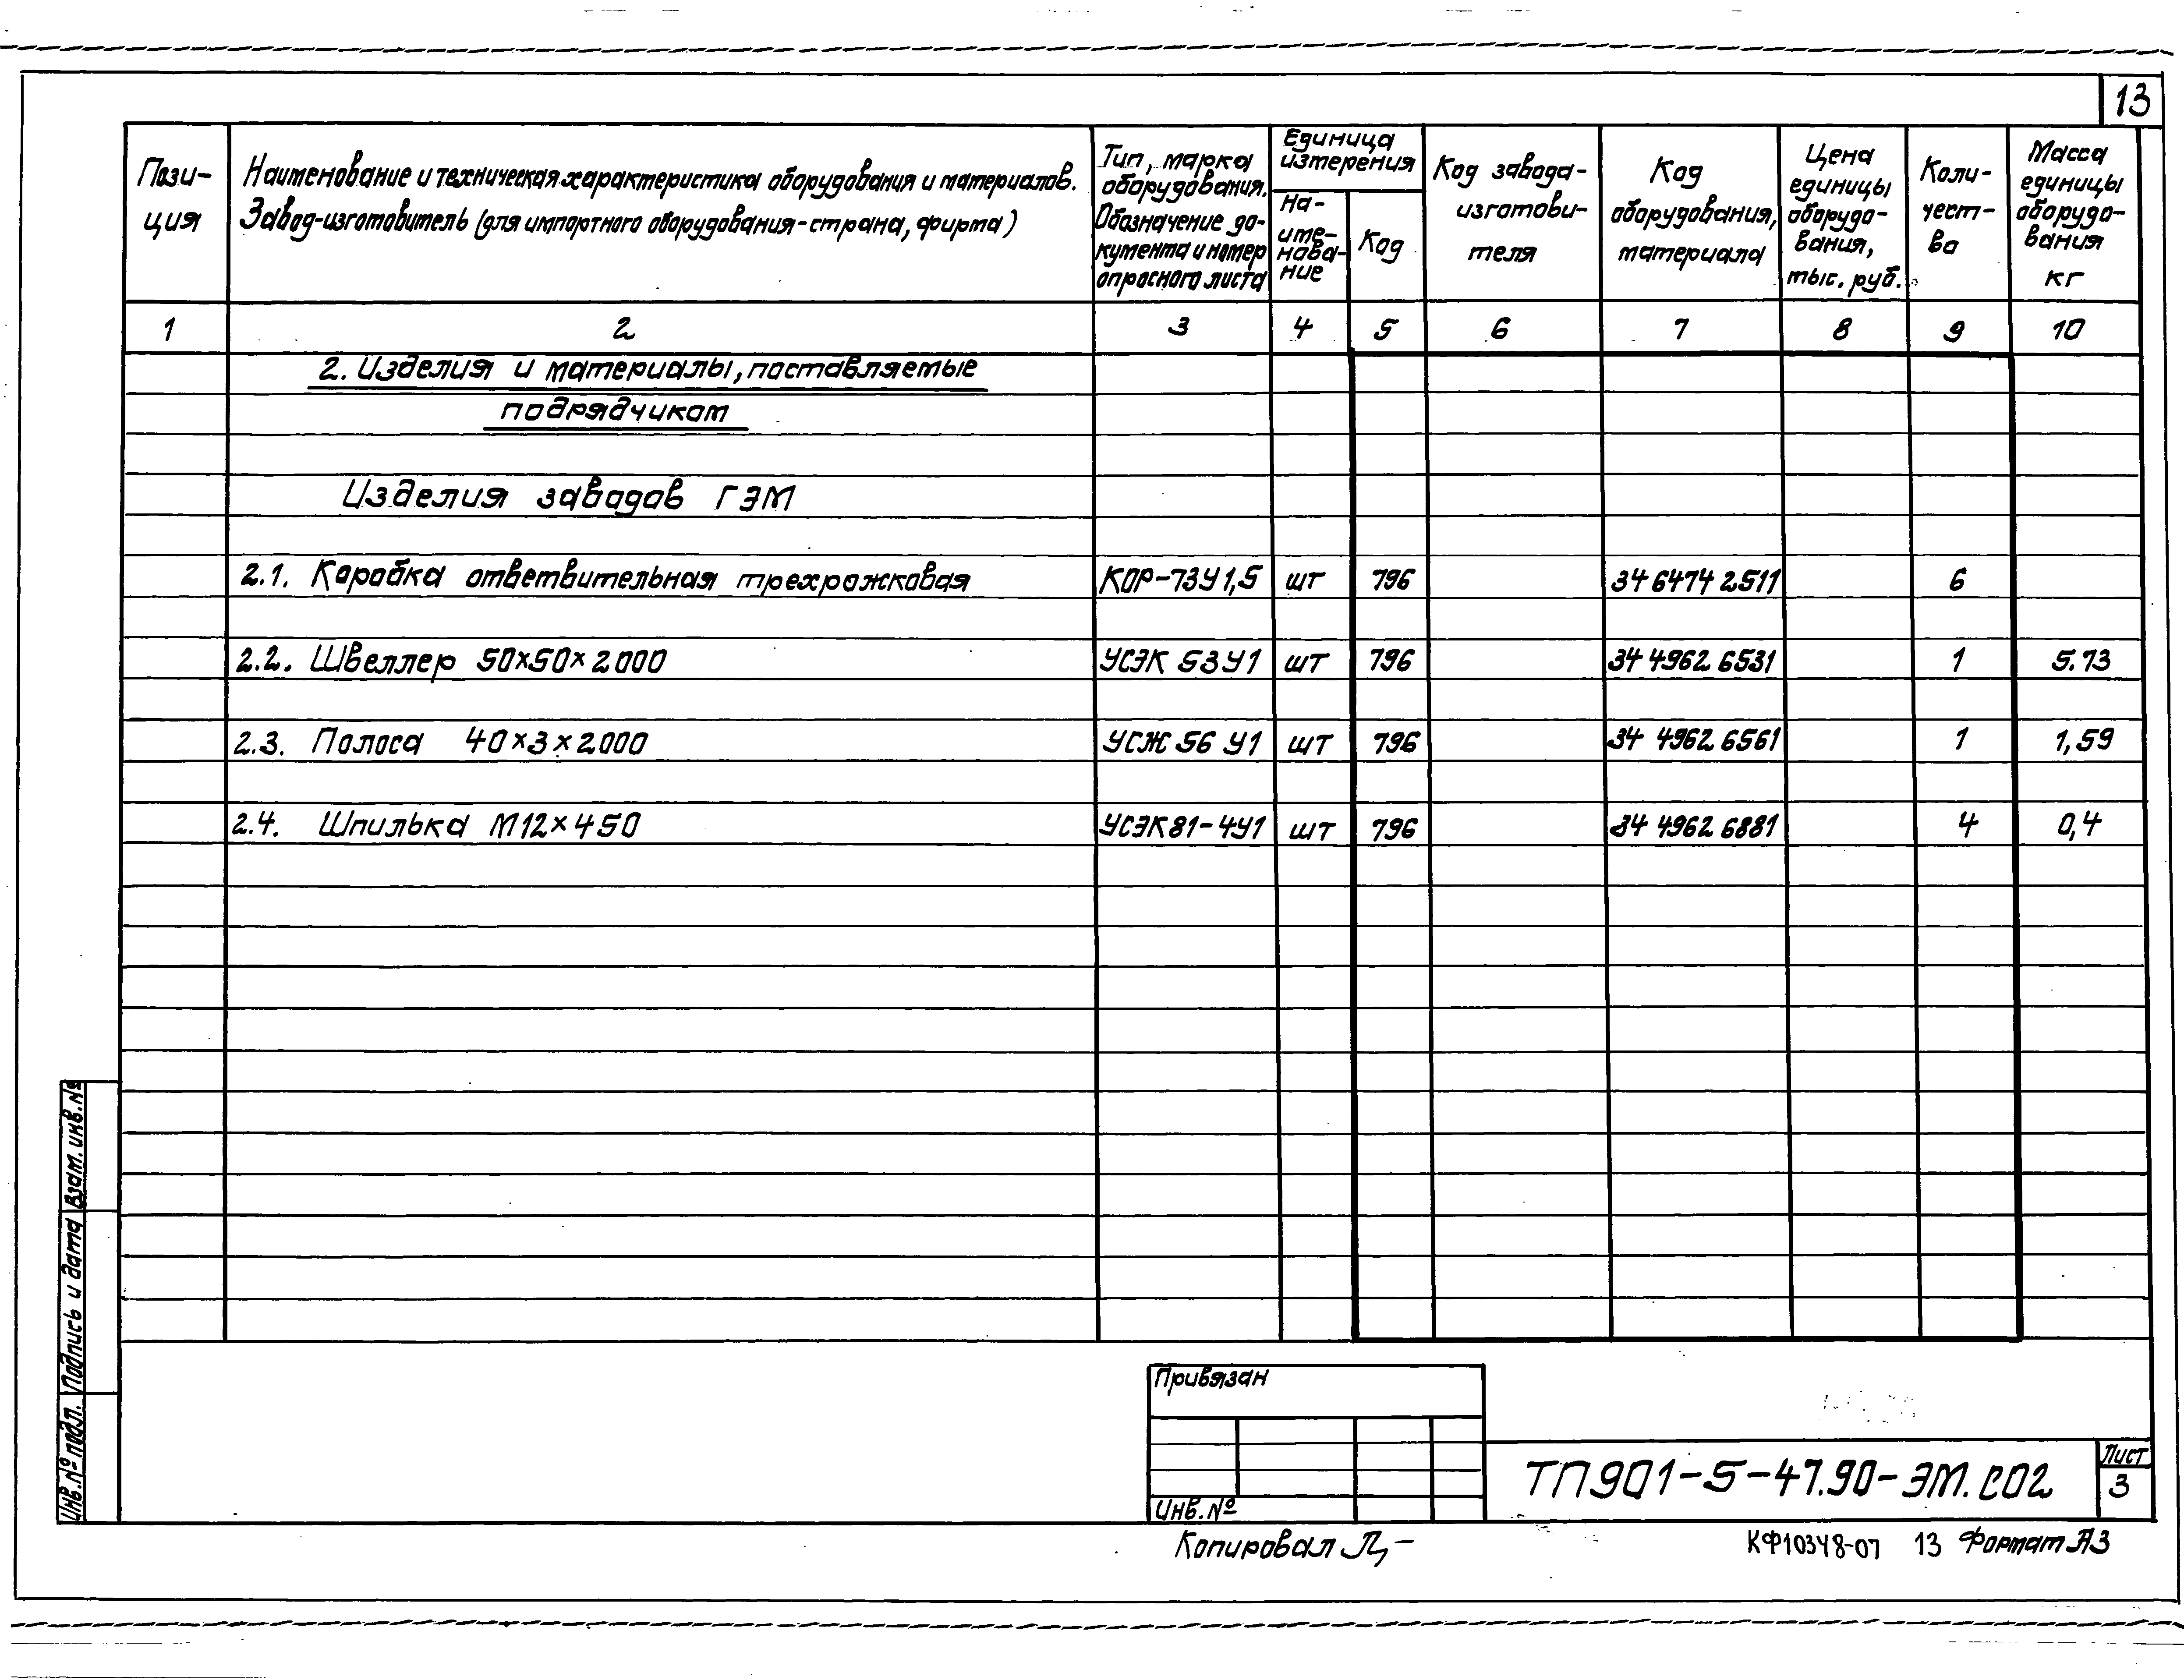 13
Пози-
ция
Наименование и техническая характеристика оборудования и материалов.
Завод-изготовитель (для импортного оборудования-страна, фирма)
Тип, марка
оборудования.
Обозначение до-
кумента и номер
опросного листа
Единица
измерения
На-
име-
нова-
ние
Код
Код завода-
изготови-
теля
Код
оборудования,
материала
Цена
единицы
оборудо-
вания,
тыс. руб.
Коли-
чест-
ва
Масса
единицы
оборудо-
вания
кг
1 2 3 4 5 6 7 8 9 10
2. Изделия и материалы, поставляемые
подрядчиком
Изделия заводов ГЭМ
2.1. Коробка ответвительная трехрожковая КОР-73У1,5 шт 796 34 6474 2511 6
2.2. Швеллер 50×50×2000 УСЭК 53У1 шт 796 34 4962 6531 1 5.73
2.3. Полоса 40×3×2000 УСЖ 56 У1 шт 796 34 4962 6561 1 1,59
2.4. Шпилька М12×450 УСЭК81-4У1 шт 796 34 4962 6881 4 0,4
Взам. инв. №
Подпись и дата
Инв. № подл.
Привязан
Инв. №
ТП901-5-47.90-ЭМ.СО2
Лист
3
Копировал
КФ10348-07 13 Формат А3